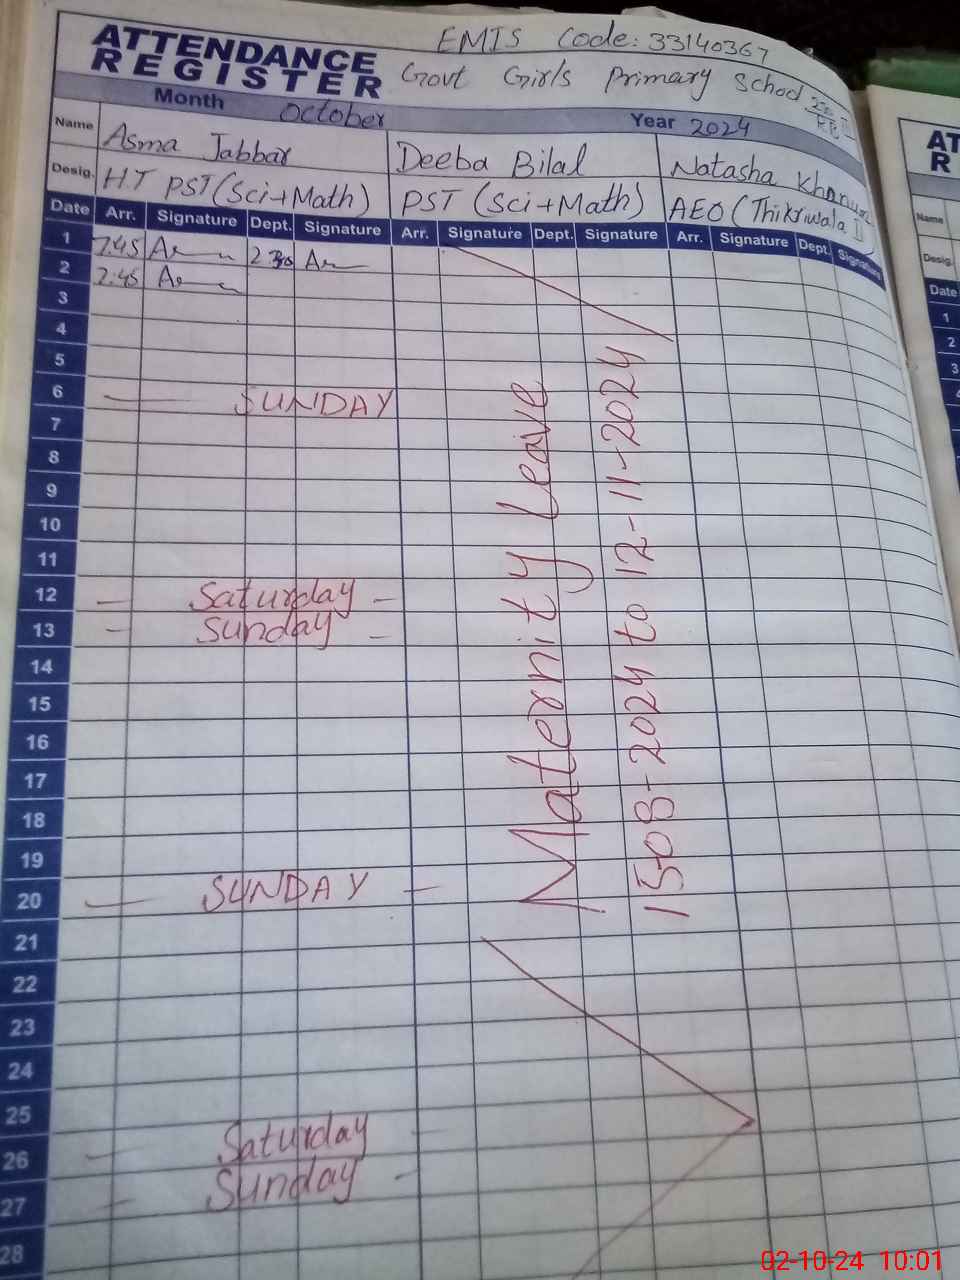 EMIS Code: 33140367
ATTENDANCE REGISTER
Govt Girls Primary School
Month October Year 2024
Name Asma Jabbar Deeba Bilal Natasha Khanum
Desig. H.T PST(Sci+Math) PST (Sci+Math) AEO (Thikriwala II)
Date Arr. Signature Dept. Signature Arr. Signature Dept. Signature Arr. Signature Dept. Signature
1 7.45 2.30
2 7.45
3
4
5
6 SUNDAY
7
8
9
10
11
12 Saturday
13 Sunday
14
15
16
17
18
19
20 SUNDAY
21
22
23
24
25
26 Saturday
27 Sunday
28
Maternity Leave
1508-2024 to 12-11-2024
AT
R
Name
Desig.
Date
1
2
3
02-10-24 10:01